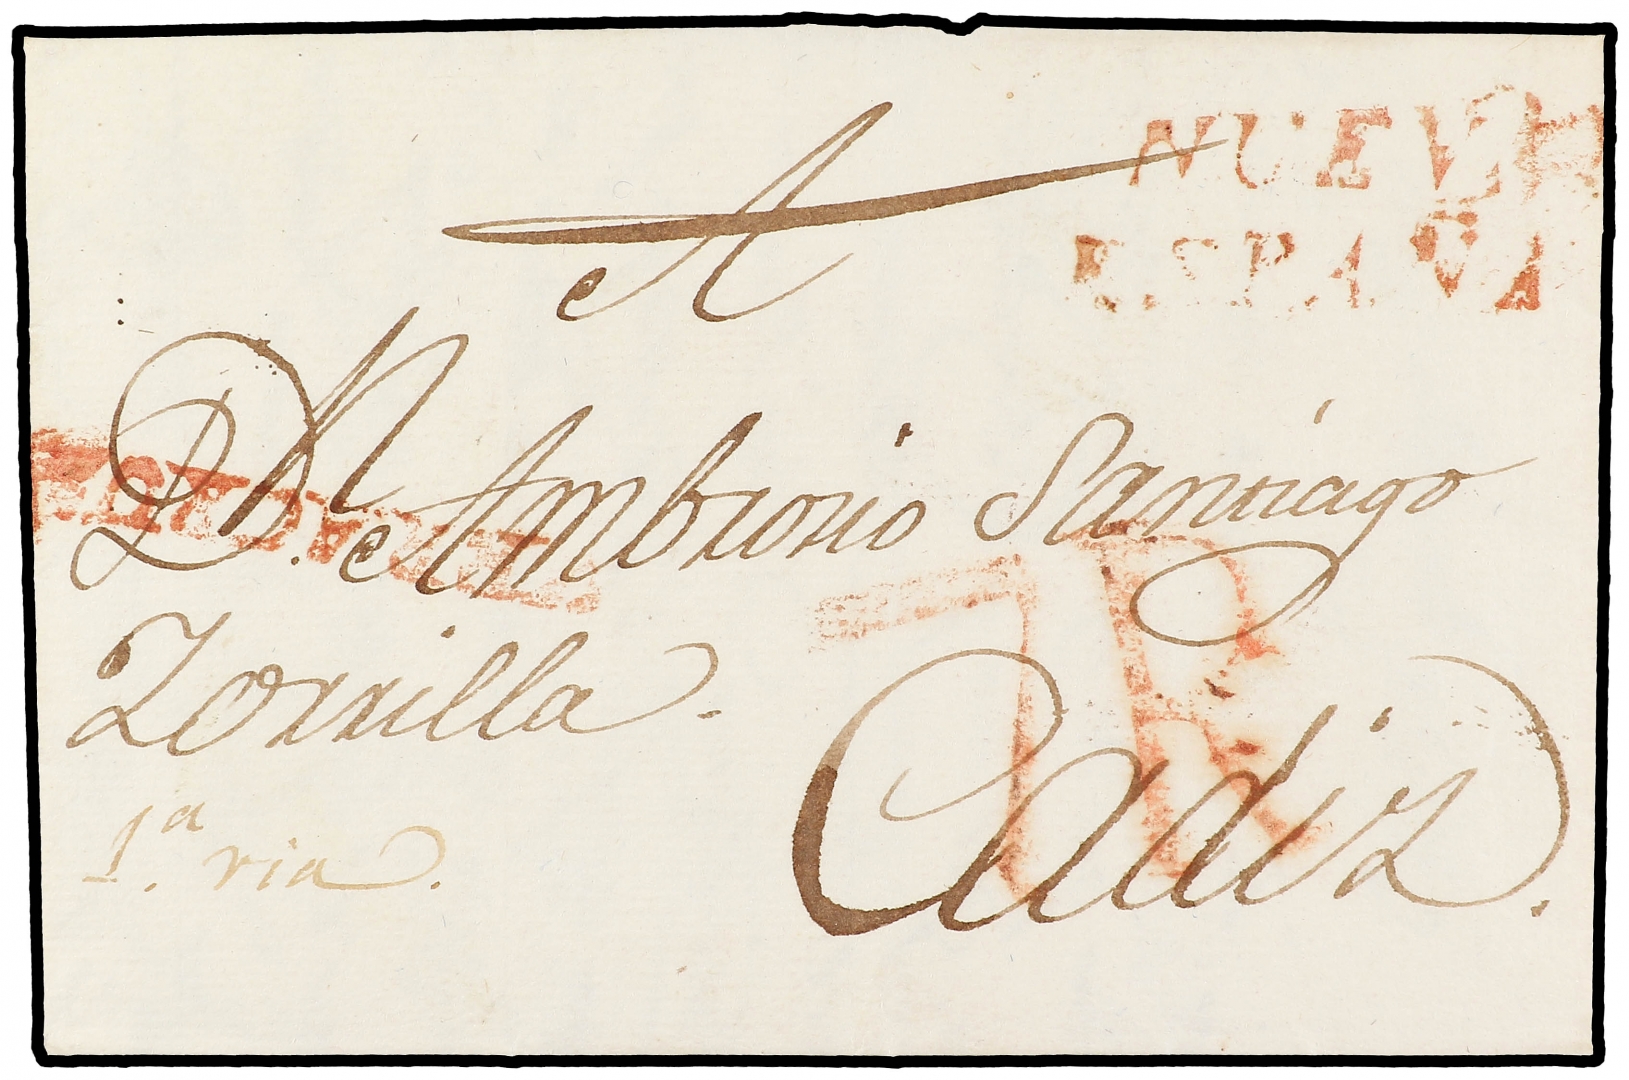 NUEVA
ESPAÑA
A
Dn. Ambrosio Santiago
Zorrilla.
7R
Cadiz.
1a. via.